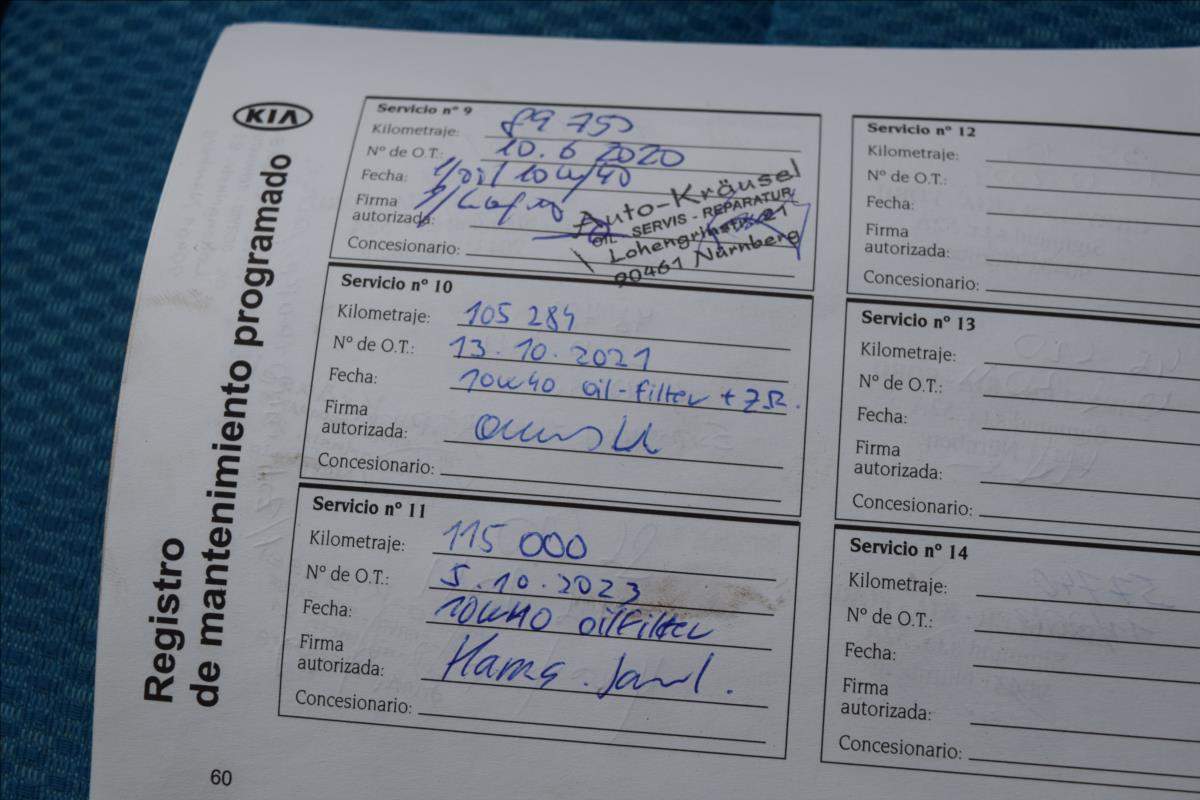 KIA
Registro
de mantenimiento programado
Servicio nº 9
Kilometraje: 89 750
Nº de O.T.: 10.6 2020
Fecha: 1/oil 10w/40
Firma
autorizada:
Concesionario:
Auto-Kräusel
OIL SERVIS - REPARATUR
Lohengrinstr. 21
90461 Nürnberg
Servicio nº 10
Kilometraje: 105 284
Nº de O.T.: 13.10.2021
Fecha: 10W40 oil-filter +
Firma
autorizada:
Concesionario:
Servicio nº 11
Kilometraje: 115 000
Nº de O.T.: 5.10.2023
Fecha: 10W40 oilfilter
Firma
autorizada:
Concesionario:
Servicio nº 12
Kilometraje:
Nº de O.T.:
Fecha:
Firma
autorizada:
Concesionario:
Servicio nº 13
Kilometraje:
Nº de O.T.:
Fecha:
Firma
autorizada:
Concesionario:
Servicio nº 14
Kilometraje:
Nº de O.T.:
Fecha:
Firma
autorizada:
Concesionario:
60